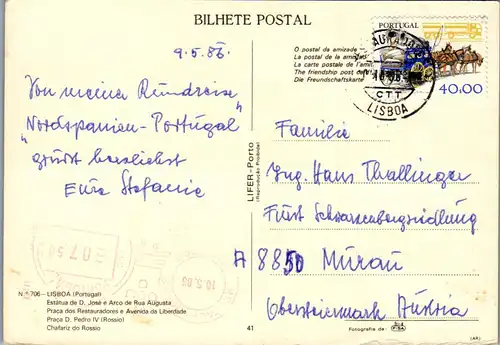 BILHETE POSTAL
PORTUGAL
40.00
CTT
LISBOA
O postal da amizade
La postal de la amizad
La carte postale de l'ami
The friendship post card
Die Freundschaftskarte
9.5.86.
Von meiner Rundreise
"Nordspanien-Portugal"
grüßt herzlichst
Eure Stefanie
LIFER-Porto
(Reprodução Proibida)
Familie
Ing. Hans Thallinger
Fürst Schwarzenbergsiedlung
A 8850 Murau
Obersteiermark Austria
N.º 706 - LISBOA (Portugal)
Estátua de D. José e Arco de Rua Augusta
Praça dos Restauradores e Avenida da Liberdade
Praça D. Pedro IV (Rossio)
Chafariz do Rossio
41
Fotografia de
(AR)